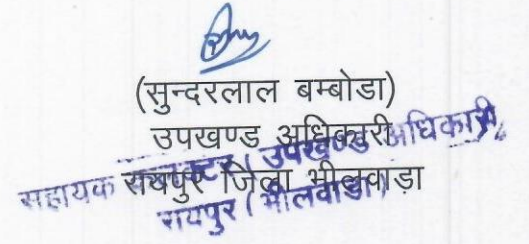 (सुन्दरलाल बम्बोडा)
उपखण्ड अधिकारी
रायपुर जिला भीलवाड़ा
सहायक कलक्टर / उपखण्ड अधिकारी
रायपुर (भीलवाडा)